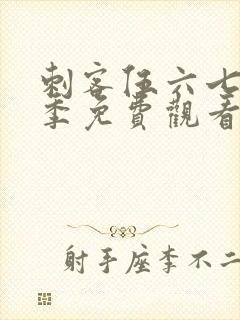 刺客伍六七
季免費觀看
射手座李不二